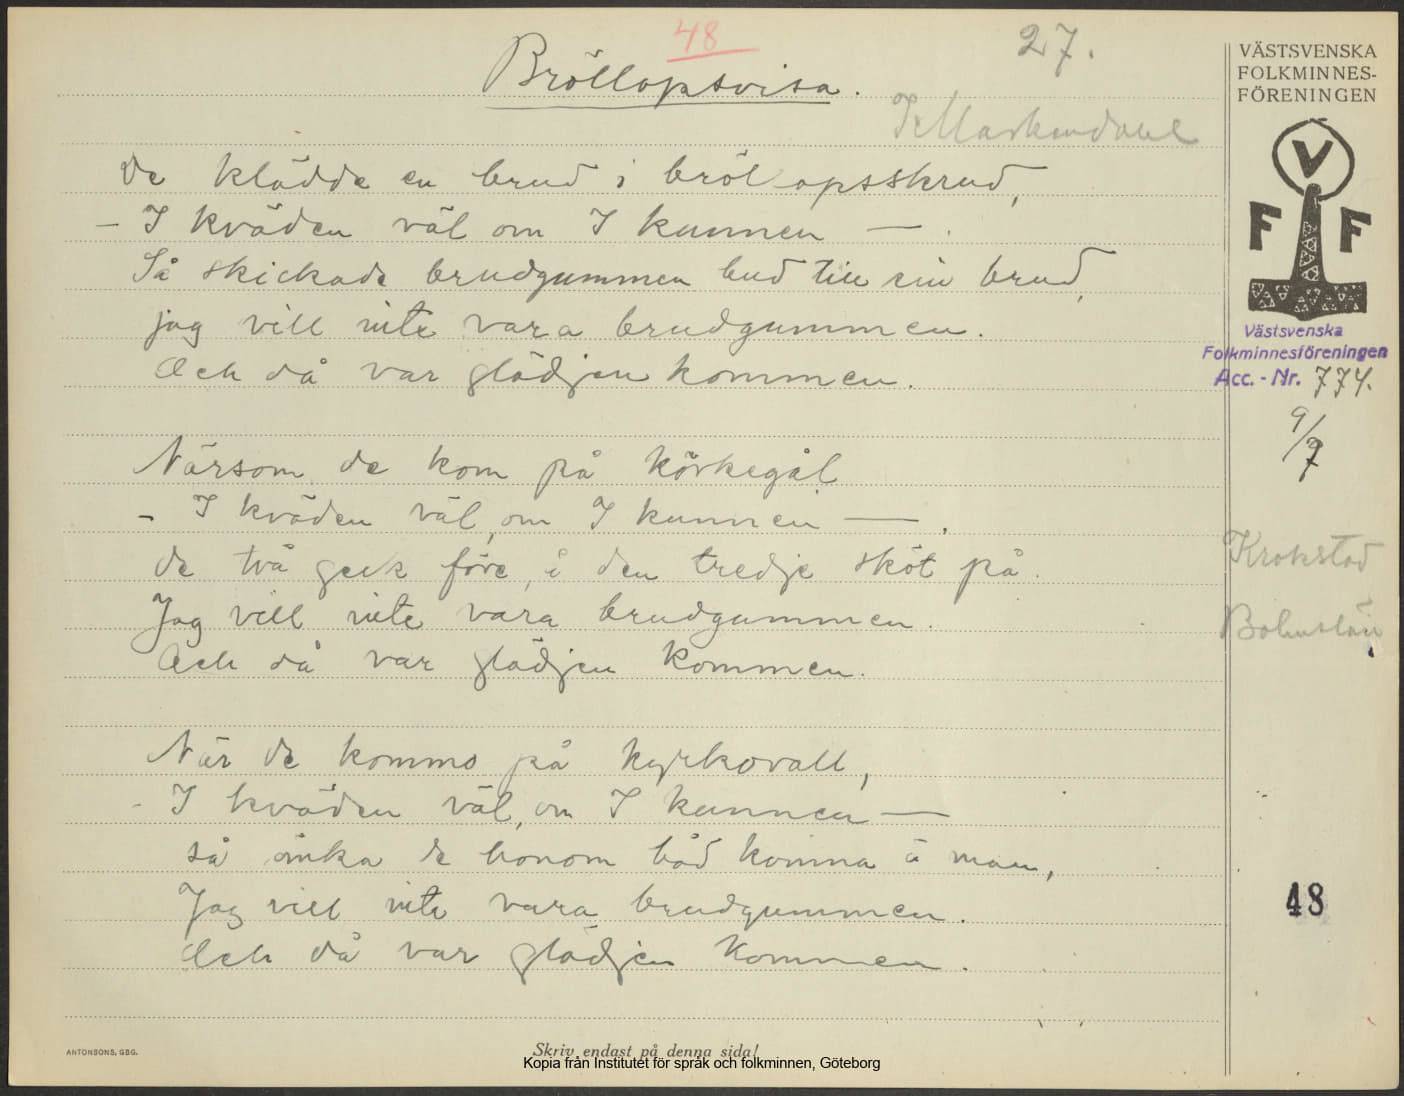 48
27.
Bröllopsvisa.
De klädde en brud i bröllopsskrud,
– I kväden väl om I kunnen –
Så skickade brudgummen bud till sin brud,
jag vill inte vara brudgummen.
Och då var glädjen kommen.
Närsom de kom på körkegål
– I kväden väl, om I kunnen –.
de två geck före, å den tredje sköt på.
Jag vill inte vara brudgummen.
Och då var glädjen kommen.
När de kommo på kyrkovall,
– I kväden väl, om I kunnen –
så önka de honom båd komma å man,
Jag vill inte vara brudgummen.
Och då var glädjen kommen.
VÄSTSVENSKA
FOLKMINNES-
FÖRENINGEN
V
F F
Västsvenska
Folkminnesföreningen
Acc.-Nr. 774.
9/7
Krokstad
Bohuslän
48
ANTONSONS, GBG.
Skriv endast på denna sida!
Kopia från Institutet för språk och folkminnen, Göteborg